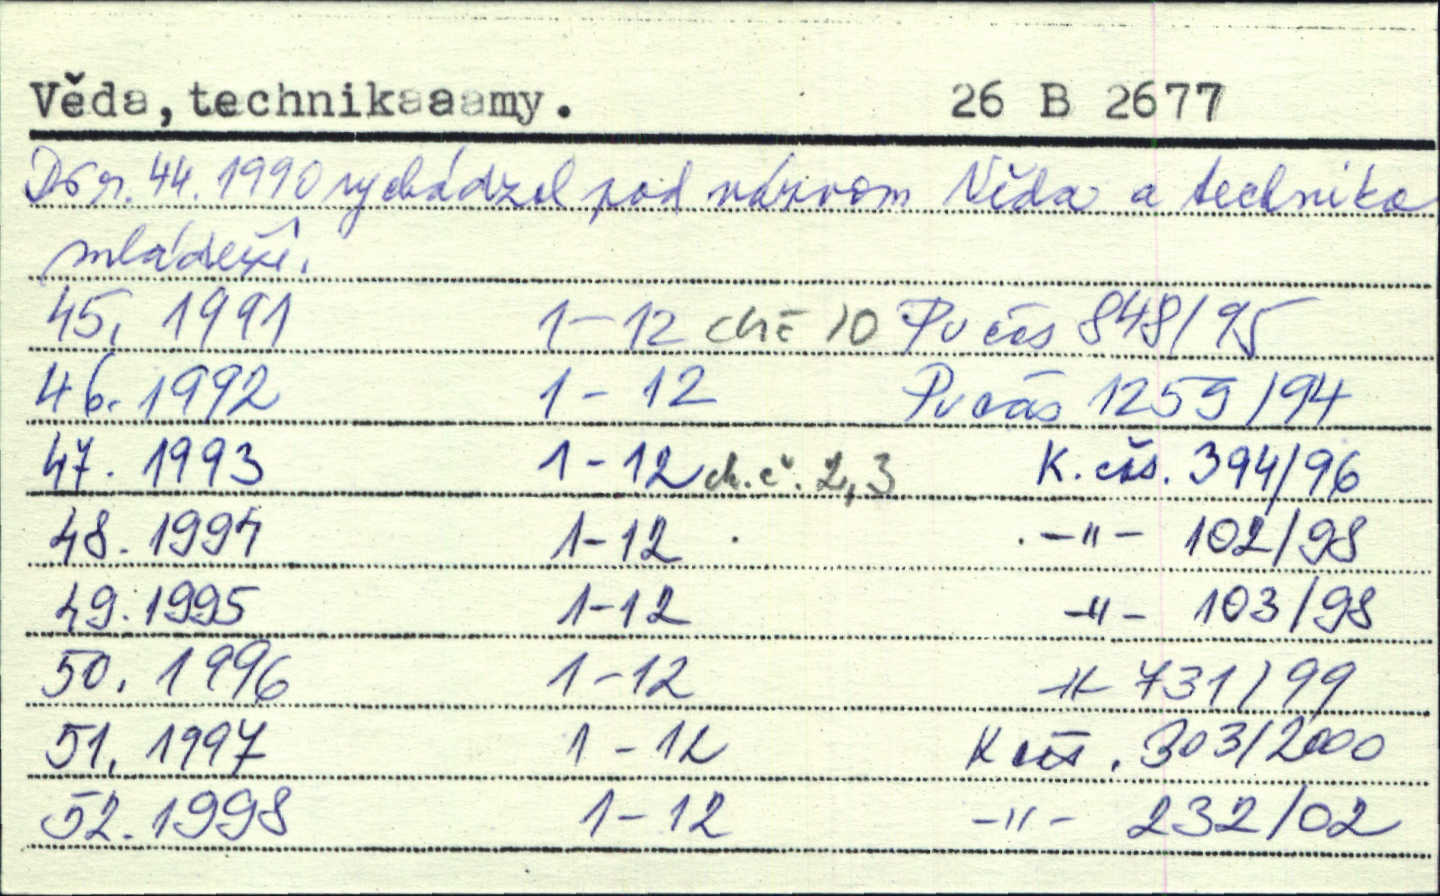 Věda, technikaaamy. 26 B 2677
Do r. 44. 1990 vychádzal pod názvom Věda a technika
mládeži.
45, 1991 1-12 ch č 10 Pv čas 848/95
46. 1992 1-12 Pv čas 1259/94
47. 1993 1-12 ch. č. 2,3 K. čas. 394/96
48. 1994 1-12 . -"- 102/98
49. 1995 1-12 -"- 103/98
50. 1996 1-12 -"- 731/99
51. 1997 1-12 K čas. 303/2000
52. 1998 1-12 -"- 232/02